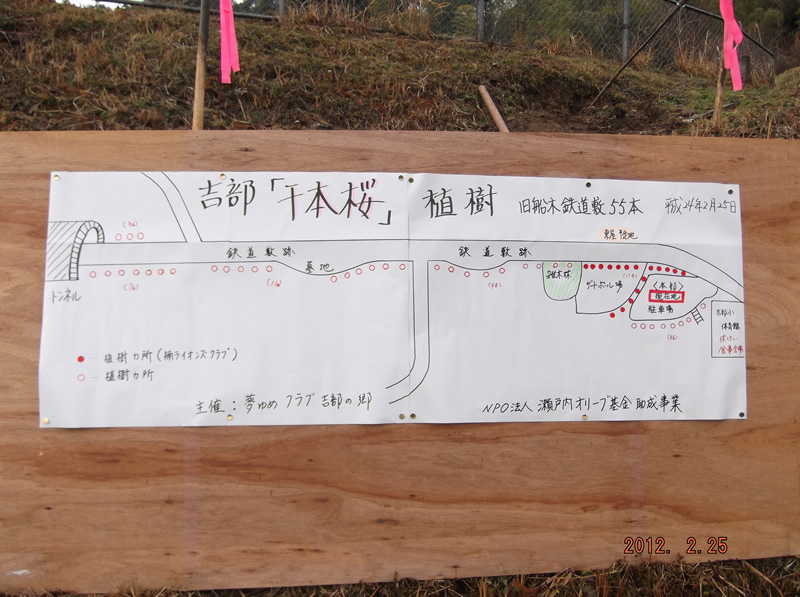 吉部「千本桜」植樹 旧船木鉄道敷55本 平成24年2月25日
東屋予定地
鉄道敷跡 鉄道敷跡
墓地
雑木林
ゲートボール場
<本部>
現在地
駐車場
トンネル
吉部小
体育館
休けい
● … 植樹カ所(楠ライオンズクラブ)
○ … 植樹カ所
主催:夢ゆめクラブ吉部の郷
NPO法人 瀬戸内オリーブ基金助成事業
2012. 2.25